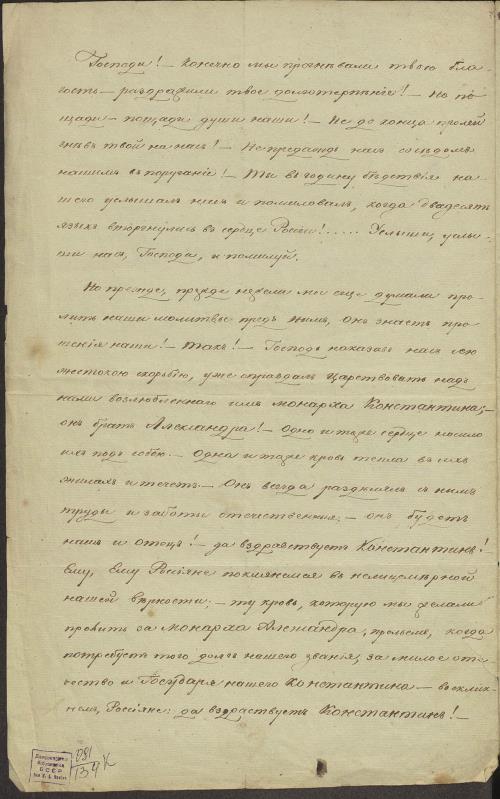 Господи! — Конечно мы прогнѣвали твою бла-
гость — раздражили твое долготерпѣніе! — Но по-
щади — пощади души наши! — Не до конца пролей
гнѣвъ твой на насъ! — Не предаждь насъ сосѣдомъ
нашимъ въ поруганіе! — Ты въ годину бѣдствія на-
шего услышалъ насъ и помиловалъ, когда двадесять
языкъ вторгнулись въ сердце Россіи!..... Услыши, услы-
ши насъ, Господи, и помилуй.
Но прежде, прежде нежели мы еще думали про-
лить наши молитвы предъ нимъ, онъ знаетъ про-
шенія наши! — Такъ! — Господь наказавъ насъ сею
жестокою скорбію, уже оправдалъ царствовать надъ
нами возлюбленнаго имъ монарха Константина; —
онъ братъ Александра! — Одно и тоже сердце носило
ихъ подъ собою. — Одна и таже кровь текла въ ихъ
жилахъ и течетъ. — Онъ всегда раздѣлялъ съ нимъ
труды и заботы отечественныя; — онъ будетъ
нашъ и отецъ! — да вздравствуетъ Константинъ!
Ему, Ему Россіяне поклянемся въ нелицемѣрной
нашей вѣрности; — ту кровь, которую мы желали
пролить за монарха Александра, прольемъ, когда
потребуетъ того долгъ нашего званія, за милое оте-
чество и Государя нашего Константина — воскликн-
емъ, Россіяне: да вздраствуетъ Константинъ! —
БССР
091
134К